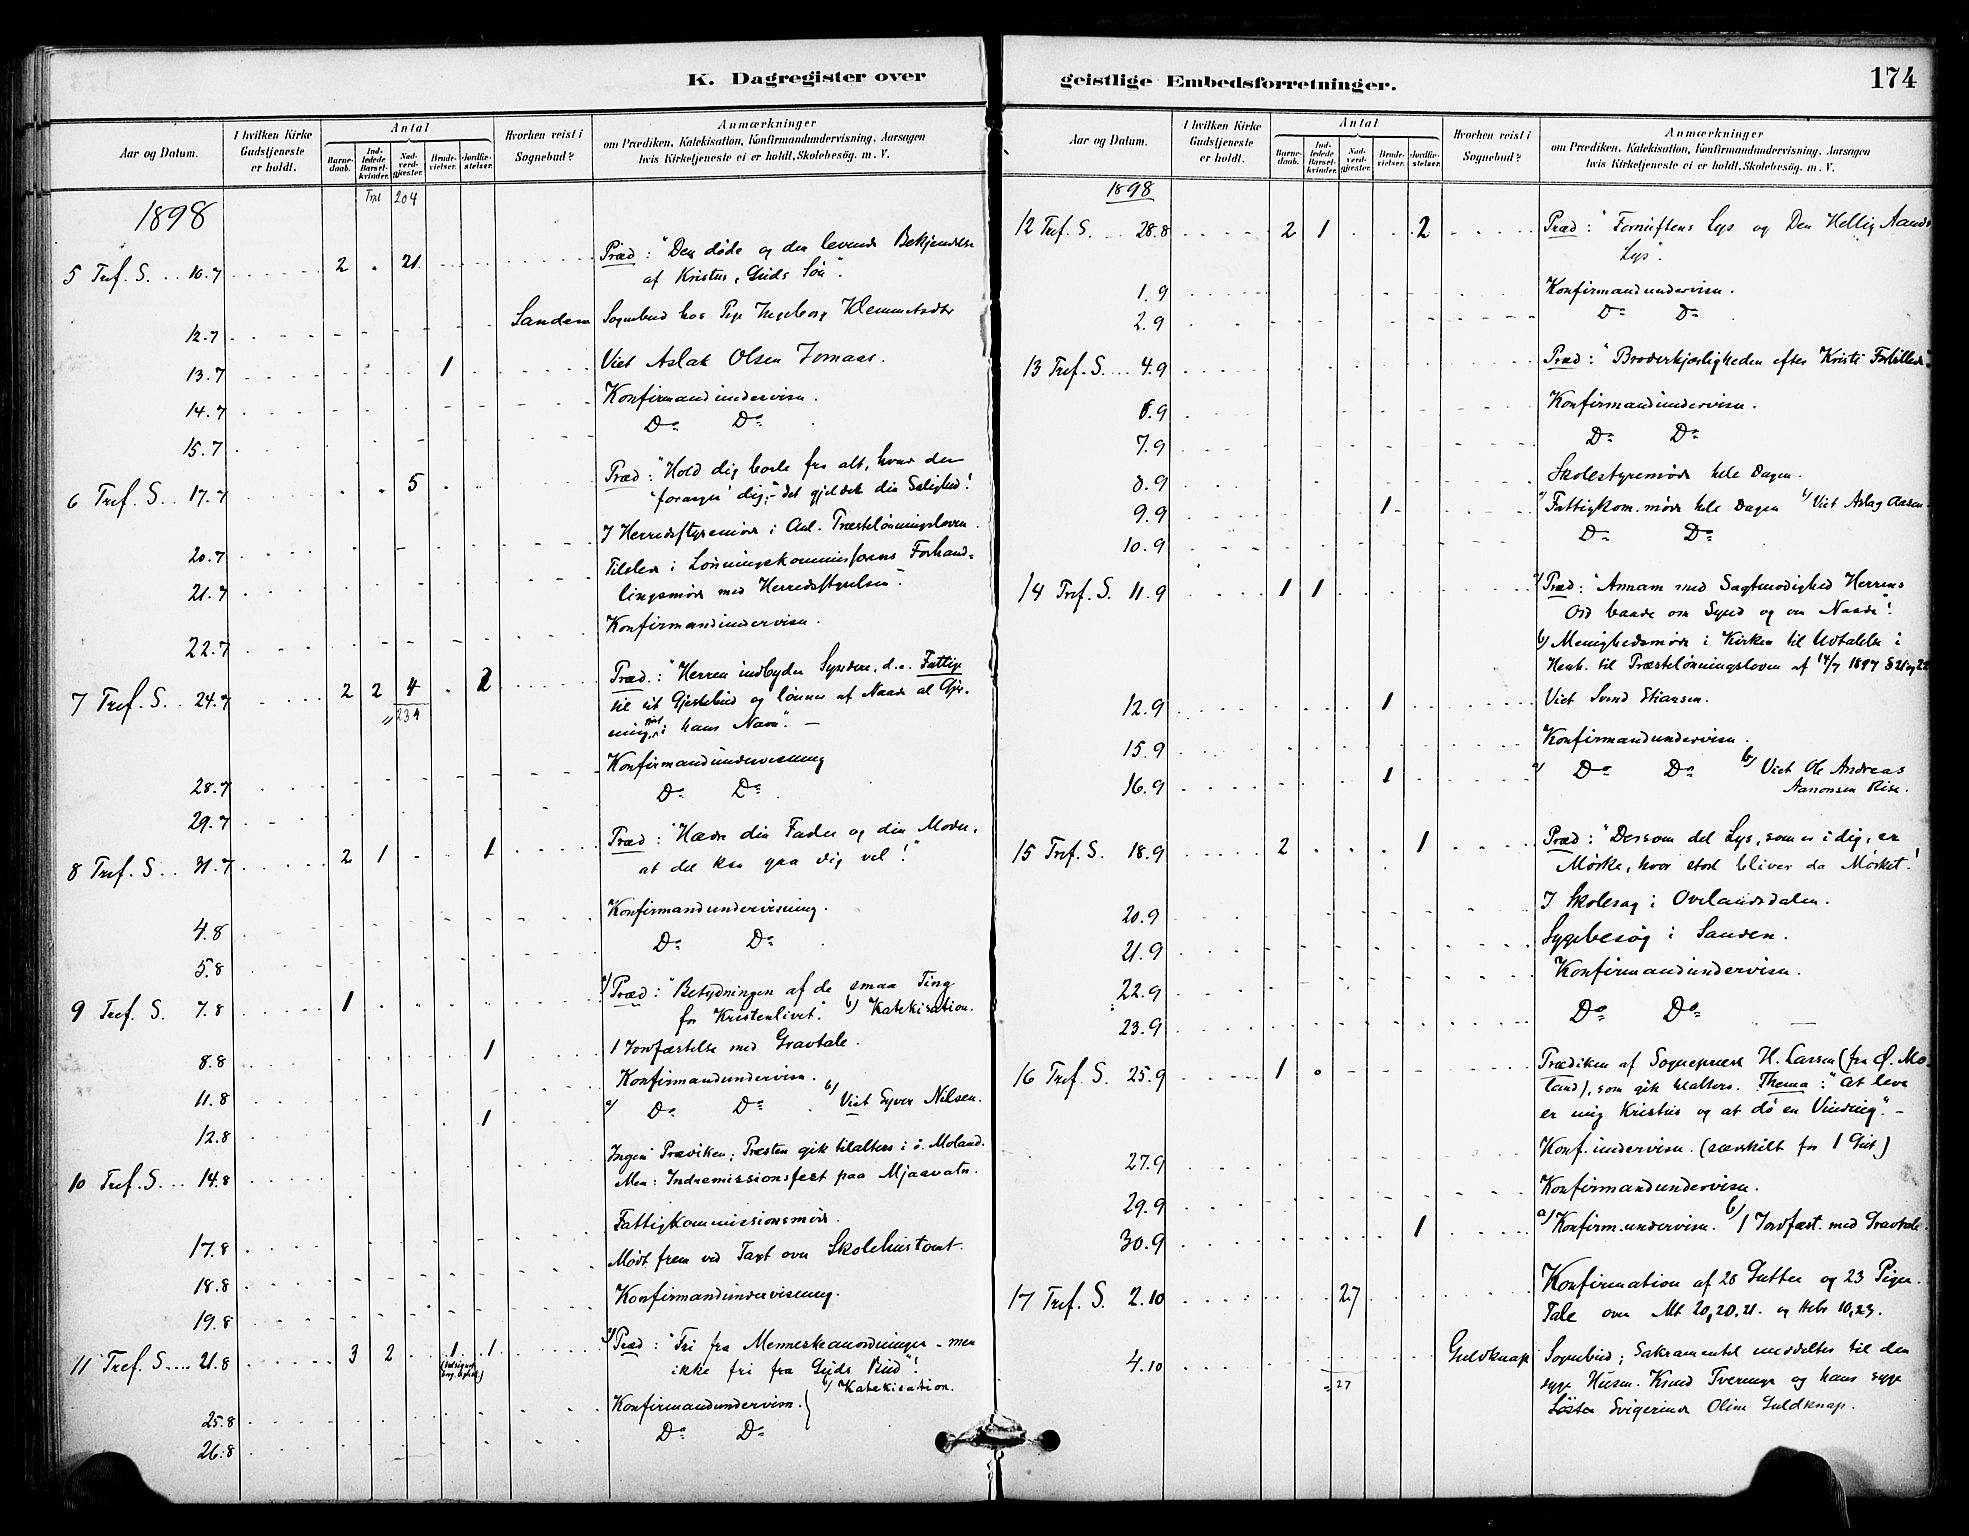 K. Dagregister over
Aar og Datum.
I hvilken Kirke Gudstjeneste er holdt.
Antal
Barnedaab.
Indledede Barselkvinder.
Nadverdgjester.
Brudevielser.
Jordfæstelser.
Hvorhen reist i Sognebud?
Anmærkninger
om Prædiken, Katekisation, Konfirmandundervisning, Aarsagen
hvis Kirketjeneste ei er holdt, Skolebesøg. m. V.
204
1898
5 Tref. S. 10.7 2 21 Præd: "Den døde og den levende Bekjendelse
af Kristus, Guds Søn".
12.7 Sanden Sognebud hos Pige Ingeborg
13.7 1 Viet Aslak Olsen Jomaas.
14.7 Konfirmandundervisn.
15.7 Do Do
6 Tref. S. 17.7 5 Præd: "Hold dig borte fra alt, hvad der
"forarger" dig; det gjelder din Salighed!
20.7 I Herredsstyremøde i Anl. Præstelønningsloven.
21.7 Tilstede i Lønningskommissionens Forhand-
lingsmøde med Herredsstyrelsen.
22.7 Konfirmandundervisn.
7 Tref. S. 24.7 2 2 4 2 Præd: "Herren indbyder Syndere, d.e. Fattige
til sit Gjestebud og lønner af Naade al Gjer-
ning i hans Navn". —
234
28.7 Konfirmandundervisning
29.7 Do Do
8 Tref. S. 31.7 2 1 1 Præd: "Hædre din Fader og din Moder,
at det kan gaa dig vel!"
4.8 Konfirmandundervisning.
5.8 Do Do
9 Tref. S. 7.8 1 a) Præd: "Betydningen af de smaa Ting
for Kristenlivet". b) Katekisation.
8.8 1 1 Jordfæstelse med Gravtale.
11.8 Konfirmandundervisn.
12.8 1 a) Do Do b) Viet Syver Nilsen.
10 Tref. S. 14.8 Ingen Prædiken; Præsten gik tilalters i ø. Moland.
Men: Indremissionsfest paa Mjaavatn.
17.8 Fattigkommissionsmøde.
18.8 Mødt frem ved Taxt over Skolehustomt.
19.8 Konfirmandundervisning.
11 Tref. S. 21.8 3 2 1 1 a) Præd: "Fri fra Menneskeanordninger – men
ikke fri fra Guds Bud"!
b) Katekisation.
25.8 Konfirmandundervisn.
26.8 Do Do
geistlige Embedsforretninger.
174
Aar og Datum.
I hvilken Kirke Gudstjeneste er holdt.
Antal
Barnedaab.
Indledede Barselkvinder.
Nadverdgjester.
Brudevielser.
Jordfæstelser.
Hvorhen reist i Sognebud?
Anmærkninger
om Prædiken, Katekisation, Konfirmandundervisning, Aarsagen
hvis Kirketjeneste ei er holdt, Skolebesøg. m. V.
1898
12 Tref. S. 28.8 2 1 2 Præd: "Fornuftens Lys og Den Hellig Aands
Lys".
1.9 Konfirmandundervisn.
2.9 Do Do
13 Tref. S. 4.9 Præd: "Broderkjærligheden efter Kristi Forbillede".
6.9 Konfirmandundervisn.
7.9 Do Do
8.9 Skolestyremøde hele Dagen.
9.9 1 a) Fattigkom.møde hele Dagen b) Viet Aslag Aasen
10.9 Do Do
14 Tref. S. 11.9 1 1 a) Præd: "Annam med Sagtmodighed Herrens
Ord baade om Synd og om Naade"!
b) Menighedsmøde i Kirken til Udtalelse i
Henh. til Præstelønningsloven af 14/7 1897 § 21 og 22
12.9 1 Viet Svend
15.9 Konfirmandundervisn.
16.9 1 a) Do Do b) Viet Ole Andreas
Aanonsen Rise.
15 Tref. S. 18.9 2 1 Præd: "Dersom det Lys, som er i dig, er
Mørke, hvor stort bliver da Mørket!
20.9 I Skolesag i Ovelandsdalen.
21.9 Sygebesøg i Sanden.
22.9 Konfirmandundervisn.
23.9 Do Do
16 Tref. S. 25.9 1 Prædiken af Sognepræst H. Larsen (fra Ø. Mo-
land), som gik tilalters. Thema: "At leve
er mig Kristus og at dø en Vinding". –
27.9 Konf.undervisn. (særskilt for 1 Gut)
29.9 Konfirmandundervisn.
30.9 1 a) Konfirm.undervisn. b) 1 Jordfæst. med Gravtale.
17 Tref. S. 2.10 27 Konfirmation af 26 Gutter og 23 Piger.
Tale over Mt 20,20.21. og Hebr 10,23.
4.10 Guldknap Sognebud; Sakramentet meddeltes til den
27
syge Husm. Knud Tveringe og hans syge
Svigerinde Oline Guldknap.